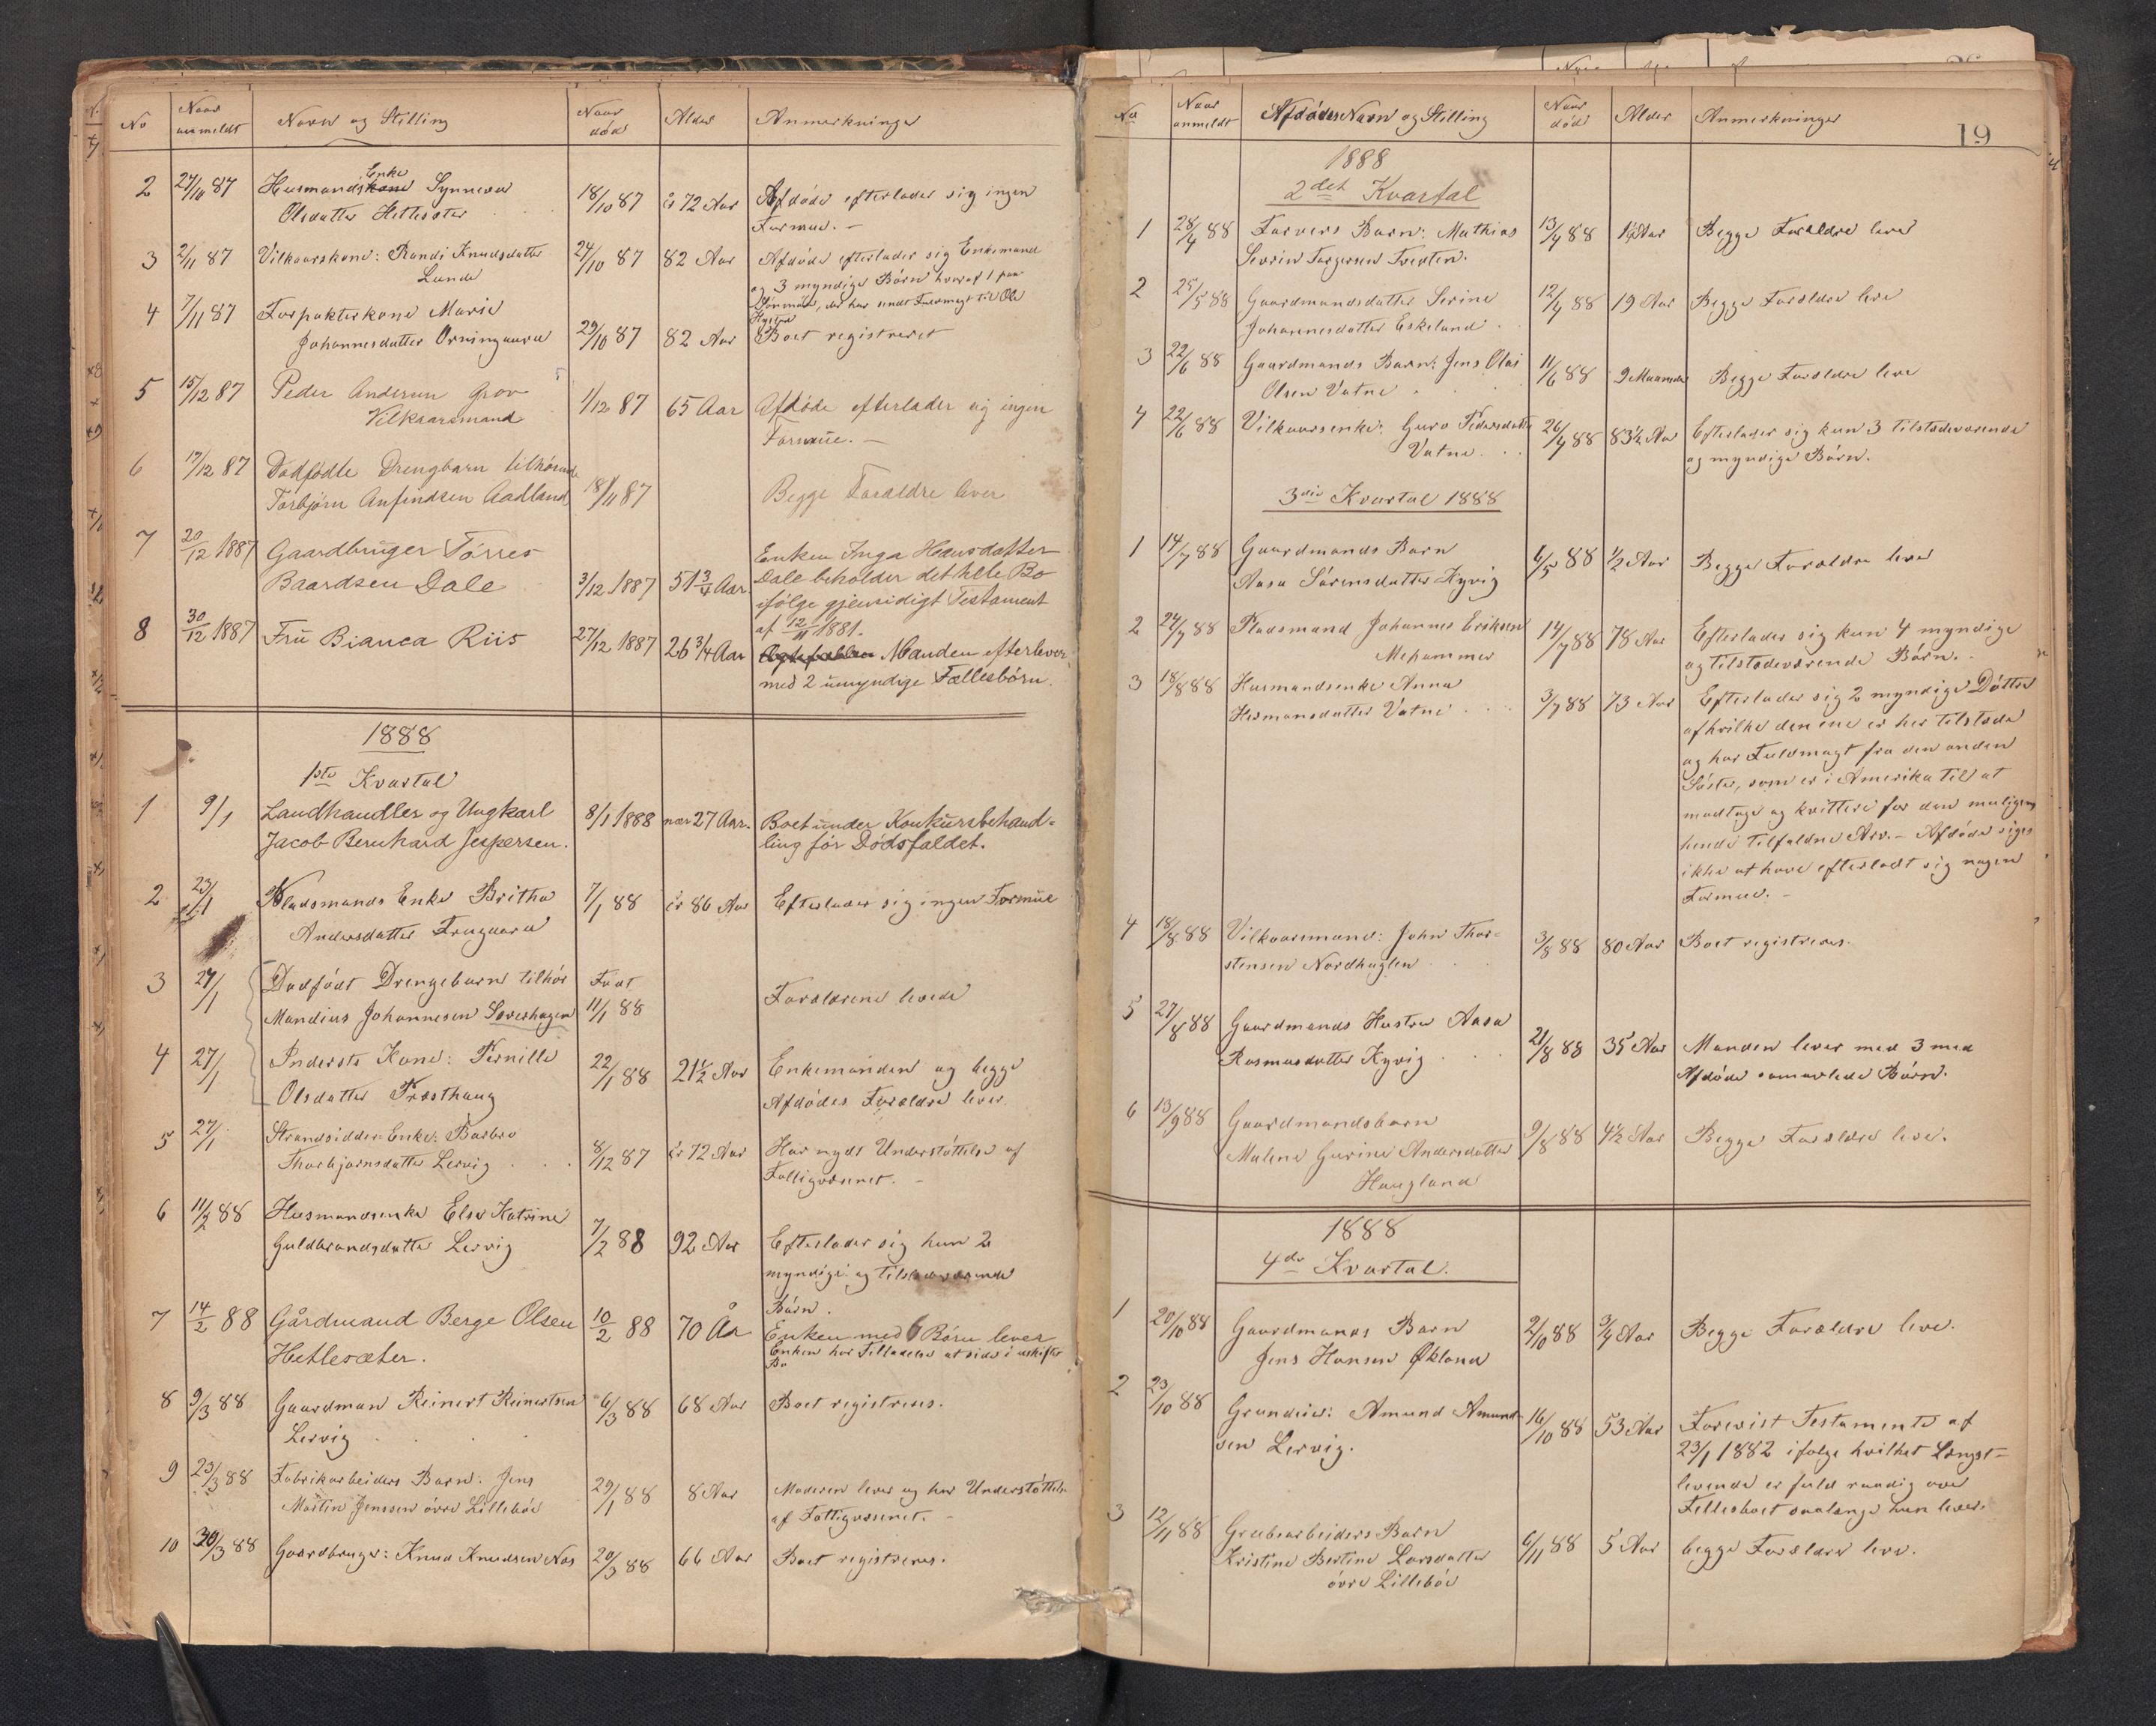 No Naar anmeldt Navn og Stilling Naar død Alder Anmerkninger
2 27/10 87 Husmands Enke Synneva 18/10 87 ir 72 Aar Afdøde efterlader sig ingen
Olsdatter Hetlesæter Formue. –
3 2/11 87 Vilkaarskone: Randi Knudsdatter 24/10 87 82 Aar Afdøde efterlader sig Enkemand
Lunde og 3 myndige Børn hvoraf 1 paa
, der har sendt Fuldmagt til Ole
Hystad
4 7/11 87 Forpakterkone Marie
Johannesdatter Orningaard 29/10 87 82 Aar Boet registreret
5 15/12 87 Peder Andersen Grov 1/12 87 65 Aar Afdøde efterlader sig ingen
Vilkaarsmand Formue. –
6 17/12 87 Dødfødte Drengbarn tilhørende
Torbjørn Anfindsen Aadland 18/11 87 Begge Forældre lever
7 20/12 1887 Gaardbruger Tørres Enken Inga Hansdatter
Baardsen Dale 3/12 1887 51 3/4 Aar. Dale beholder det hele Bo
ifølge gjensidigt Testament
af 12/11 1881.
8 30/12 1887 Fru Bianca Riis 27/12 1887 26 3/4 Aar Manden efterlever
med 2 umyndige Fællesbørn.
1888
1ste Kvartal
1 9/1 Landhandler og Ungkarl 8/1 1888 nær 27 Aar. Boet under Konkursbehand-
Jacob Bernhard Jespersen. ling før Dødsfaldet.
2 23/1 Pladsmands Enke Britha 7/1 88 ir 86 Aar Efterlader sig ingen Formue
Andersdatter Frugaard
3 27/1 Dødfødt Drengebarn tilhør Født
Mandius Johannesen Sørerhagen 11/1 88 Forældrene levede
4 27/1 Indersts Kone: Pernille 22/1 88 21 1/2 Aar Enkemanden og begge
Olsdatter Præsthaug Afdødes Forældre lever.
5 27/1 Strandsidder Enke: Barbro 8/12 87 ir 72 Aar Har nydt Understøttelse af
Thorbjørnsdatter Lervig Fattigvæsenet. –
6 11/2 88 Husmandsenke Else Katrine 7/2 88 92 Aar Efterlader sig kun 2
Guldbrandsdatter Lervig myndige og tilstedeværende
Børn.
7 14/2 88 Gårdmand Berge Olsen 10/2 88 70 År Enken med 6 Børn lever
Hetlesæter. Enken har Tilladelse at sidde i uskiftet
Bo
8 9/3 88 Gaardman Reinert Reinertsen 6/3 88 68 Aar Boet registreres.
Lervig
9 23/3 88 Fabrikarbeiders Barn: Jens 29/1 88 8 Aar Moderen lever og har Understøttelse
Martin Jenssen øvre Lillebøe af Fattigvæsenet. –
10 30/3 88 Gaardbruger: Knud Knudsen Næs 20/3 88 66 Aar Boet registreres.
19
No Naar anmeldt Afdødes Navn og Stilling Naar død Alder Anmerkninger
1888
2det Kvartal
1 28/4 88 Farvers Barn: Mathias 13/4 88 1 1/4 Aar Begge Forældre lever
Sevrin Torgersen Tveiten.
2 25/5 88 Gaardmandsdatter Serine 12/4 88 19 Aar Begge Forældre leve
Johannesdatter Eskeland
3 22/6 88 Gaardmands Barn: Jens Olai 11/6 88 9 Maaneder Begge Forældre leve
Olsen Vatne
4 22/6 88 Vilkaarsenke: Guro Pedersdatter 26/4 88 83 1/2 Aar Efterlader sig kun 3 tilstedeværende
Vatne. og myndige Børn.
3die Kvartal 1888
1 14/7 88 Gaardmands Barn 6/5 88 1/2 Aar Begge Forældre lever
Aasa Sørensdatter Kyvig
2 24/7 88 Pladsmand Johannes Eriksen 14/7 88 78 Aar Efterlader sig kun 4 myndige
Mehammer og tilstedeværende Børn. –
3 18/8 88 Husmandsenke Anna 3/7 88 73 Aar Efterlader sig 2 myndige Døttre
Hermansdatter Vatne af hvilke den ene er her tilstede
og har Fuldmagt fra den anden
Søster, som er i Amerika til at
modtage og kvittere for den muligens
hende tilfaldne Arv. – Afdøde siges
ikke at have efterladt sig nogen
Formue. –
4 18/8 88 Vilkaarsmand: John Thor- 3/8 88 80 Aar Boet registreres.
stensen Nordhuglen
5 27/8 88 Gaardmands Hustru Aasa 21/8 88 35 Aar Manden lever med 3 med
Rasmusdatter Kyvig Afdøde sammavlede Børn.
6 13/9 88 Gaardmandsbarn 9/8 88 4 1/2 Aar Begge Forældre leve.
Malene Gurine Andersdatter
Haugland
1888
4de Kvartal.
1 20/10 88 Gaardmands Barn 2/10 88 3/4 Aar Begge Forældre leve.
Jens Hansen Økland
2 23/10 88 Grundeier: Amund Amund- 16/10 88 53 Aar Forevist Testamente af
sen Lervig. 23/1 1882 ifølge hvilket Længst-
levende er fuld raadig over
Fellesboet saalænge hun lever.
3 12/11 88 Grubearbeiders Barn 6/11 88 5 Aar begge Forældre leve.
Kristine Bertine Larsdatter
øvre Lillebøe